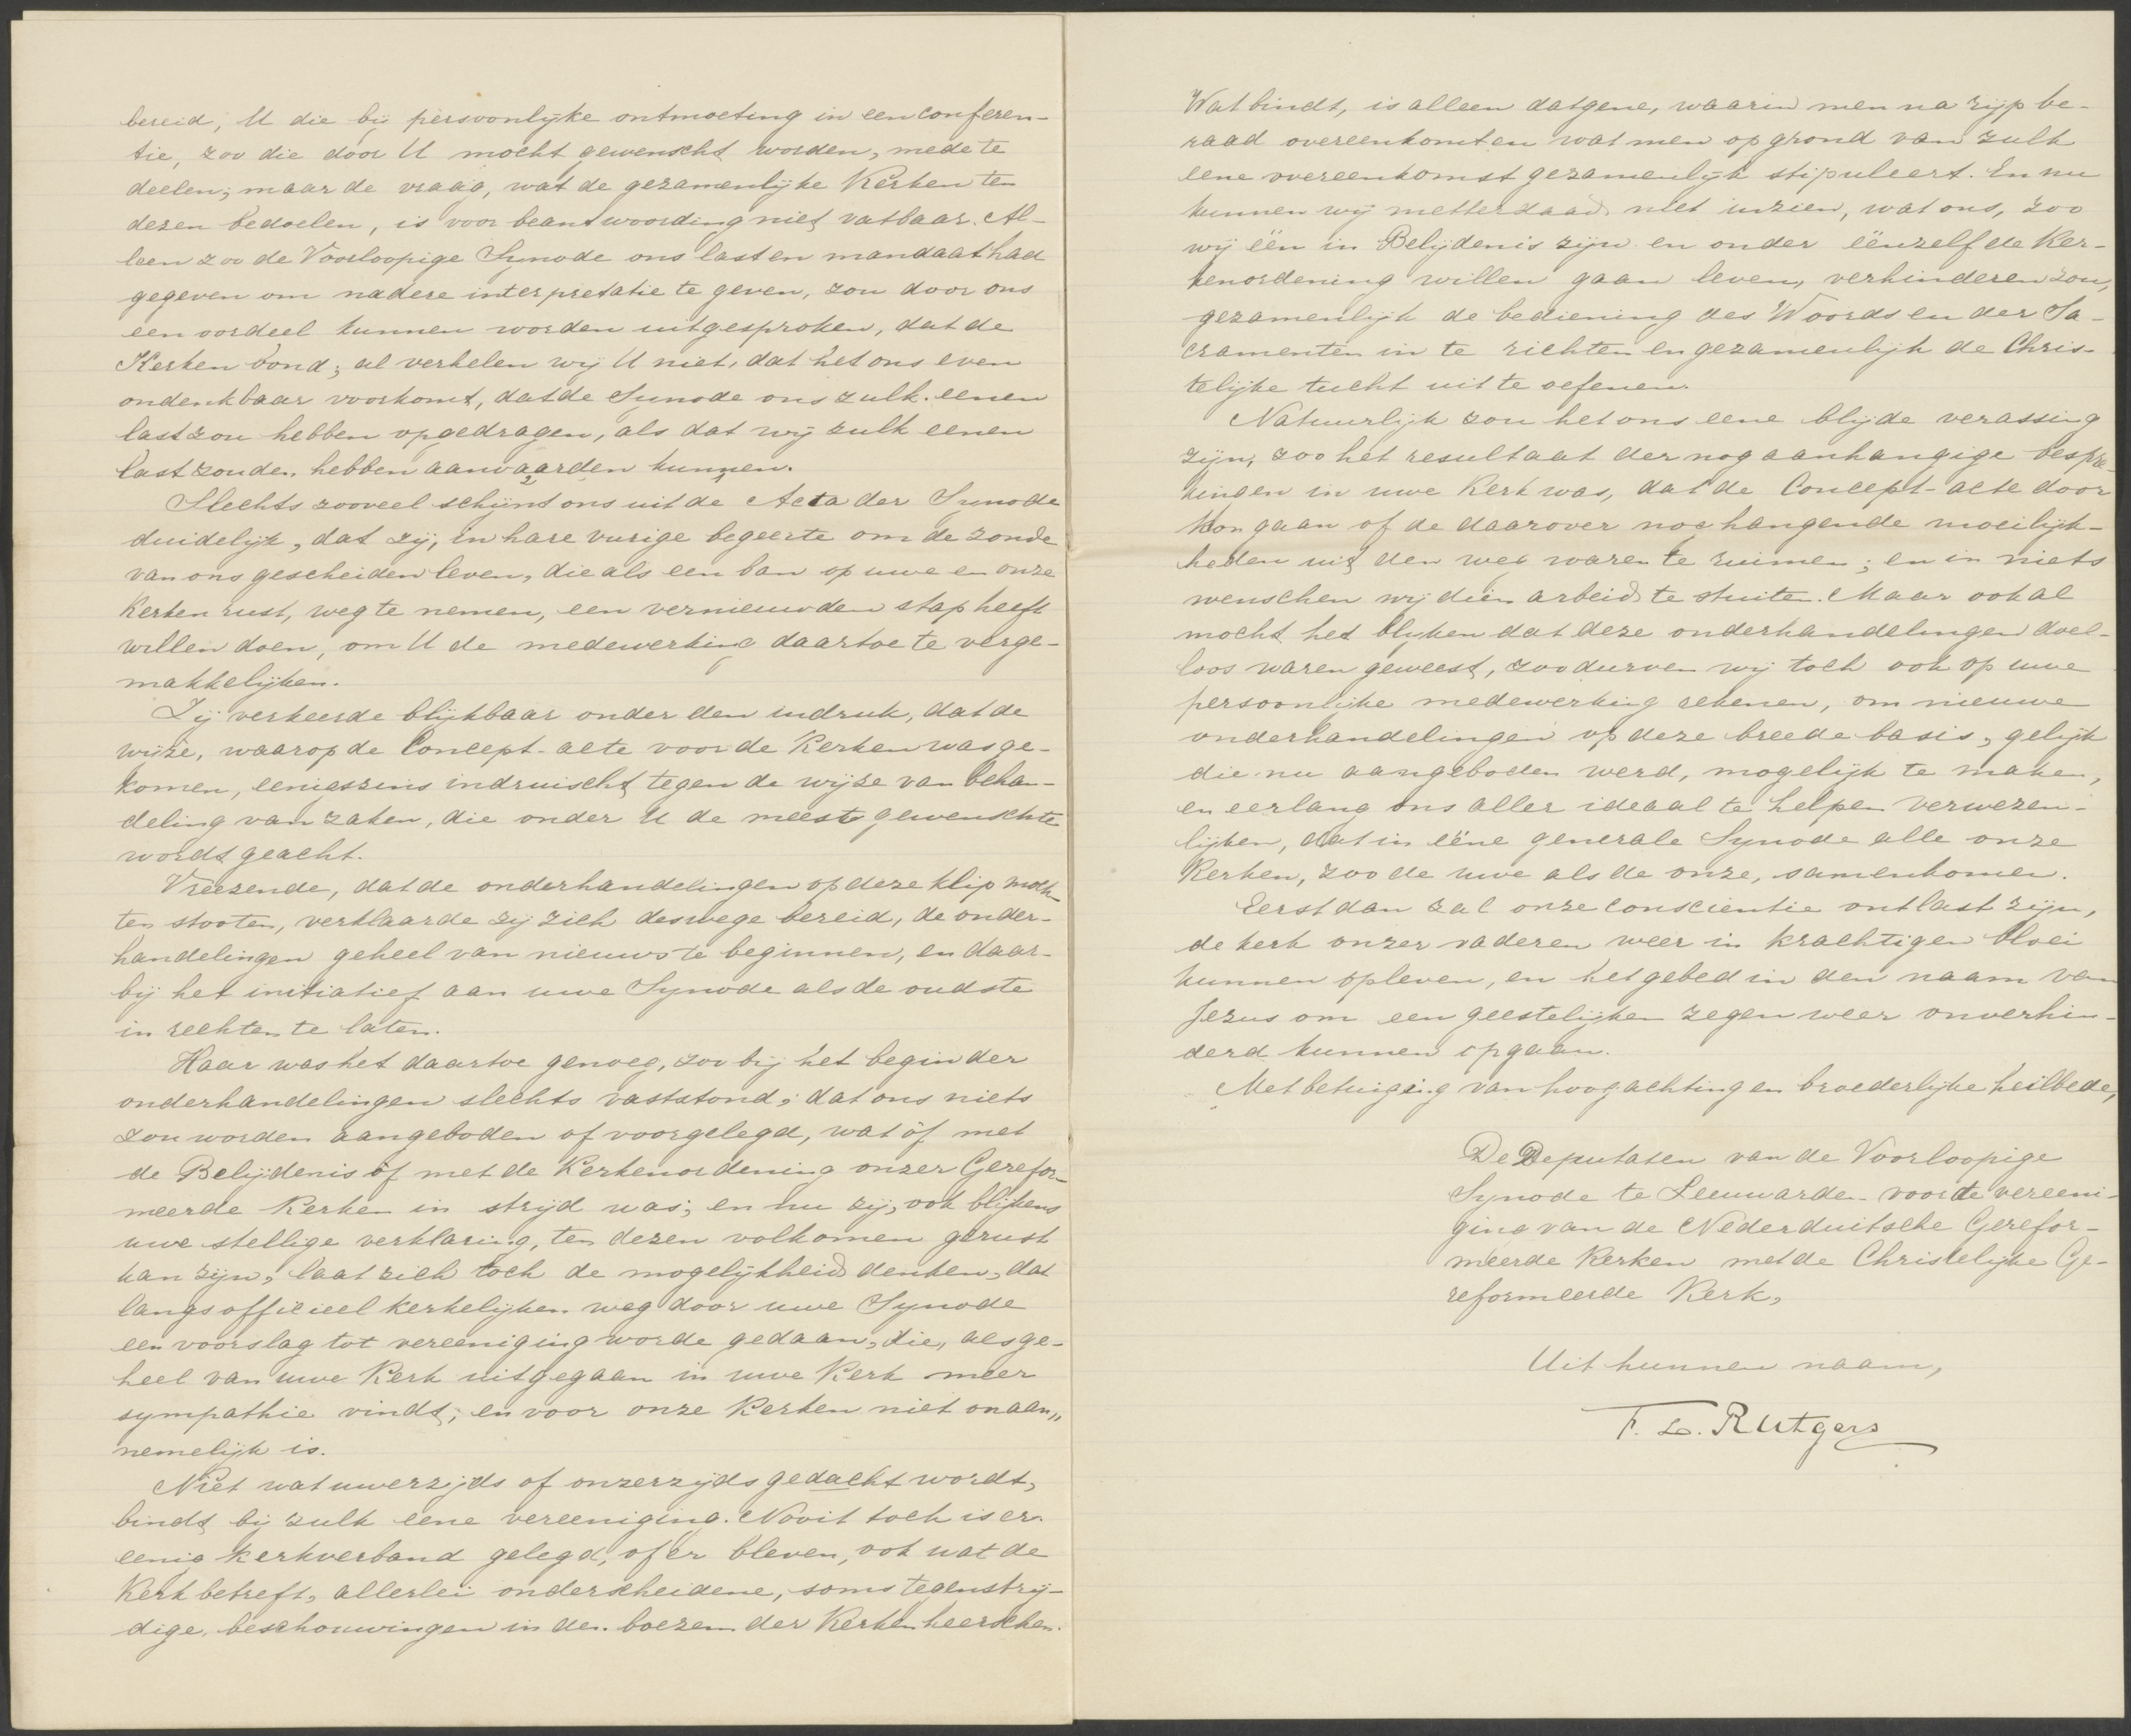 bereid, U die bij persoonlijke ontmoeting in een conferen-
tie, zoo die door U mocht gewenscht worden, mede te
deelen; maar de vraag, wat de gezamenlijke Kerken ten
dezen bedoelen, is voor beantwoording niet vatbaar. Al-
leen zoo de Voorloopige Synode ons last en mandaat had
gegeven om nadere interpretatie te geven, zou door ons
een oordeel kunnen worden uitgesproken, dat de
Kerken bond; al verhelen wij U niet, dat het ons even
ondenkbaar voorkomt, dat de Synode ons zulk eenen
last zou hebben opgedragen, als dat wij zulk eenen
last zouden hebben aanvaarden kunnen.
Slechts zooveel schijnt ons uit de Acta der Synode
duidelijk, dat zij, in hare vurige begeerte om de zonde
van ons gescheiden leven, die als een ban op uwe en onze
Kerken rust, weg te nemen, een vernieuwden stap heeft
willen doen, om U de medewerking daartoe te verge-
makkelijken.
Zij verkeerde blijkbaar onder den indruk, dat de
wijze, waarop de Concept-acte voor de Kerken was ge-
komen, eenigszins indruischt tegen de wijze van behan-
deling van zaken, die onder U de meest gewenschte
wordt geacht.
Vreezende, dat de onderhandelingen op deze klip moch-
ten stooten, verklaarde zij zich deswege bereid, de onder-
handelingen geheel van nieuws te beginnen, en daar-
bij het initiatief aan uwe Synode als de oudste
in rechten te laten.
Haar was het daartoe genoeg, zoo bij het begin der
onderhandelingen slechts vaststond, dat ons niets
zou worden aangeboden of voorgelegd, wat òf met
de Belijdenis òf met de Kerkenordening onzer Gerefor-
meerde Kerken in strijd was; en nu zij, ook blijkens
uwe stellige verklaring, ten dezen volkomen gerust
kan zijn, laat zich toch de mogelijkheid denken, dat
langs officieel kerkelijken weg door uwe Synode
een voorslag tot vereeniging worde gedaan, die, als ge-
heel van uwe Kerk uitgegaan in uwe Kerk meer
sympathie vindt, en voor onze Kerken niet onaan„
nemelijk is.
Niet wat uwerzijds of onzerzijds gedacht wordt,
bindt bij zulk eene vereeniging. Nooit toch is er
eenig kerkverband gelegd, of er bleven, ook wat de
Kerk betreft, allerlei onderscheidene, soms tegenstrij-
dige, beschouwingen in den boezem der Kerken heerschen.
Wat bindt, is alleen datgene, waarin men na rijp be-
raad overeenkomt en wat men op grond van zulk
eene overeenkomst gezamenlijk stipuleert. En nu
kunnen wij metterdaad niet inzien, wat ons, zoo
wij één in Belijdenis zijn en onder éénzelfde Ker-
kenordening willen gaan leven, verhinderen zou,
gezamenlijk de bediening des Woords en der Sa-
cramenten in te richten en gezamenlijk de Chris-
telijke tucht uit te oefenen.
Natuurlijk zou het ons eene blijde verassing
zijn, zoo het resultaat der nog aanhangige bespre-
kingen in uwe Kerk was, dat de Concept-acte door
kon gaan of de daarover nog hangende moeilijk-
heden uit den weg waren te ruimen; en in niets
wenschen wij dien arbeid te stuiten. Maar ook al
mocht het blijken dat deze onderhandelingen doel-
loos waren geweest, zoo durven wij toch ook op uwe
persoonlijke medewerking rekenen, om nieuwe
onderhandelingen op deze breede basis, gelijk
die nu aangeboden werd, mogelijk te maken,
en eerlang ons aller ideaal te helpen verwezen-
lijken, dat in ééne generale Synode alle onze
Kerken, zoo de uwe als de onze, samenkomen.
Eerst dan zal onze conscientie ontlast zijn,
de kerk onzer vaderen weer in krachtigen bloei
kunnen opleven, en het gebed in den naam van
Jezus om een geestelijken zegen weer onverhin-
derd kunnen opgaan.
Met betuiging van hoogachting en broederlijke heilbede,
De Deputaten van de Voorloopige
Synode te Leeuwarden voor de vereeni-
ging van de Nederduitsche Gerefor-
meerde Kerken met de Christelijke Ge-
reformeerde Kerk,
Uit hunnen naam,
F. L. Rutgers